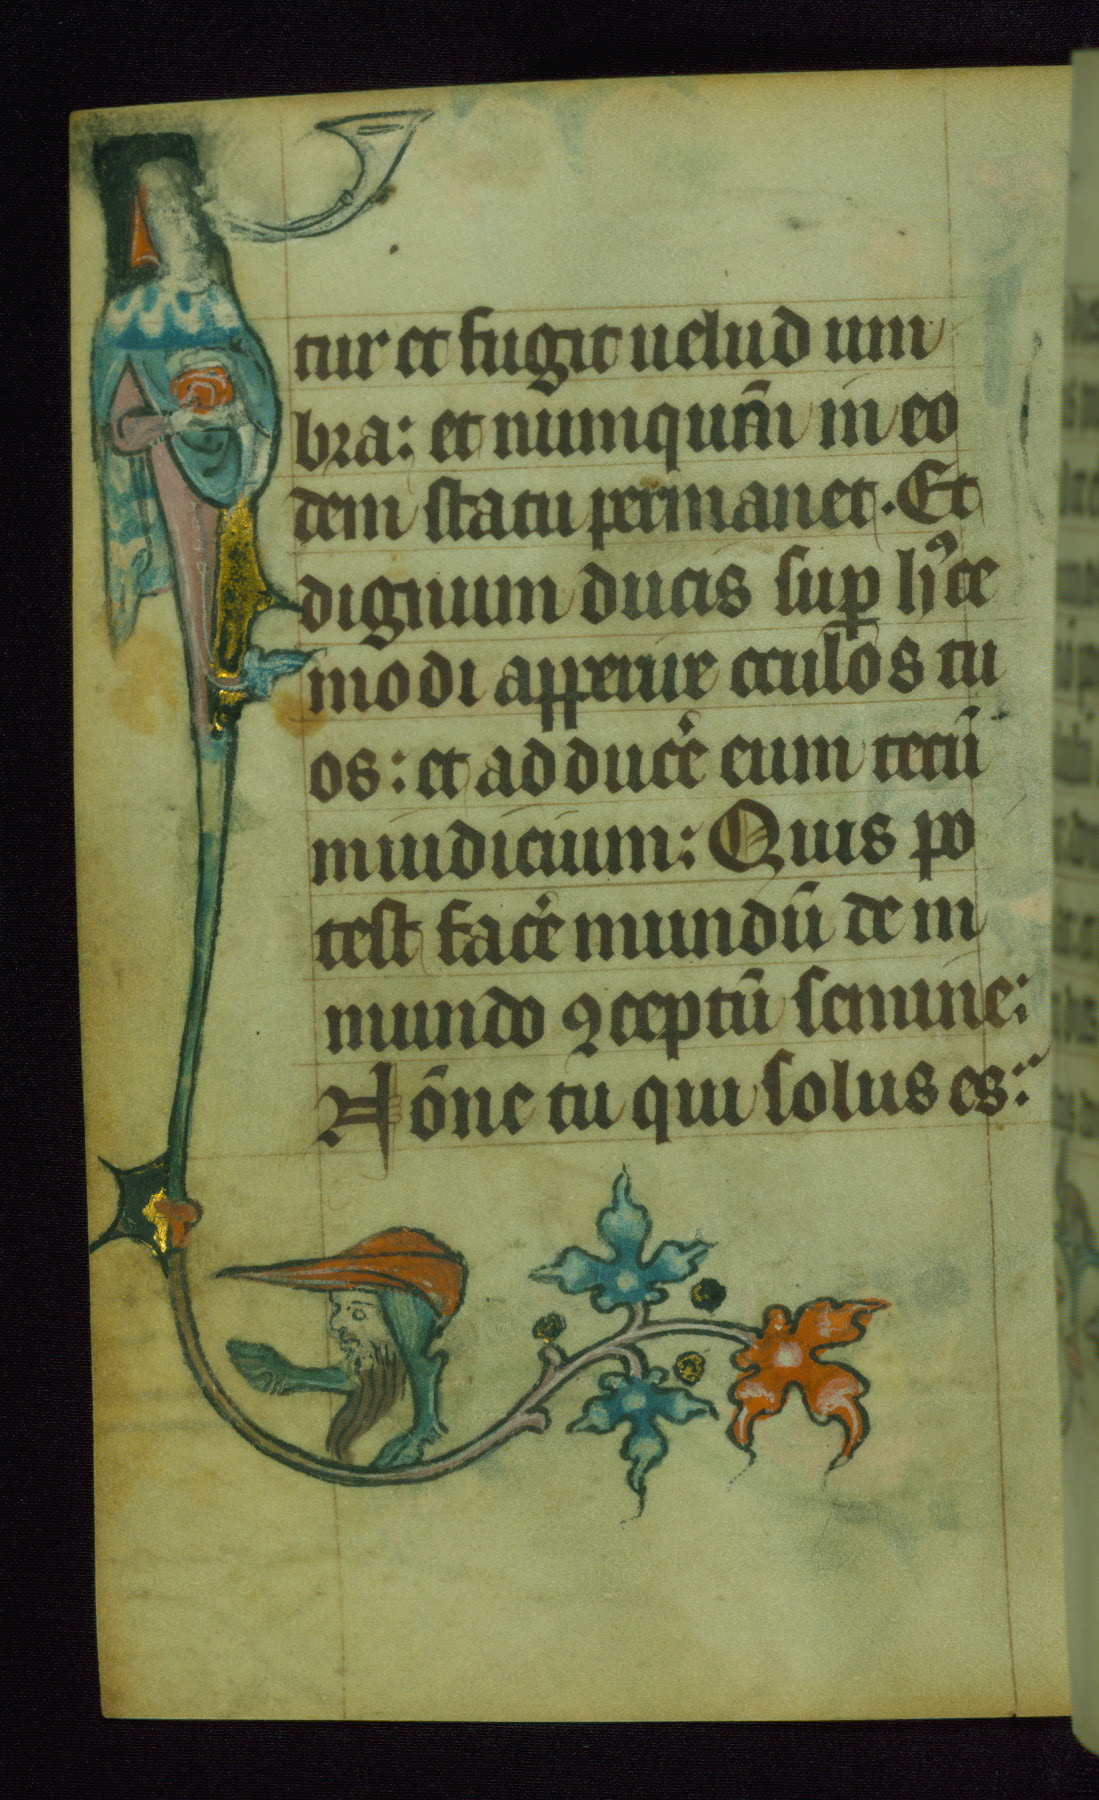 tur et fugit uelud um
bra: et numquā̄m in eo
dem statu permanet. Et
dignum ducis suꝑ hꝰce
modi apperire oculos tu
os: et adducẽ eum tecū
in iudicium: Quis po
test facẽ mundū de in
mundo ꝯceptū semine:
Nōne tu qui solus es: